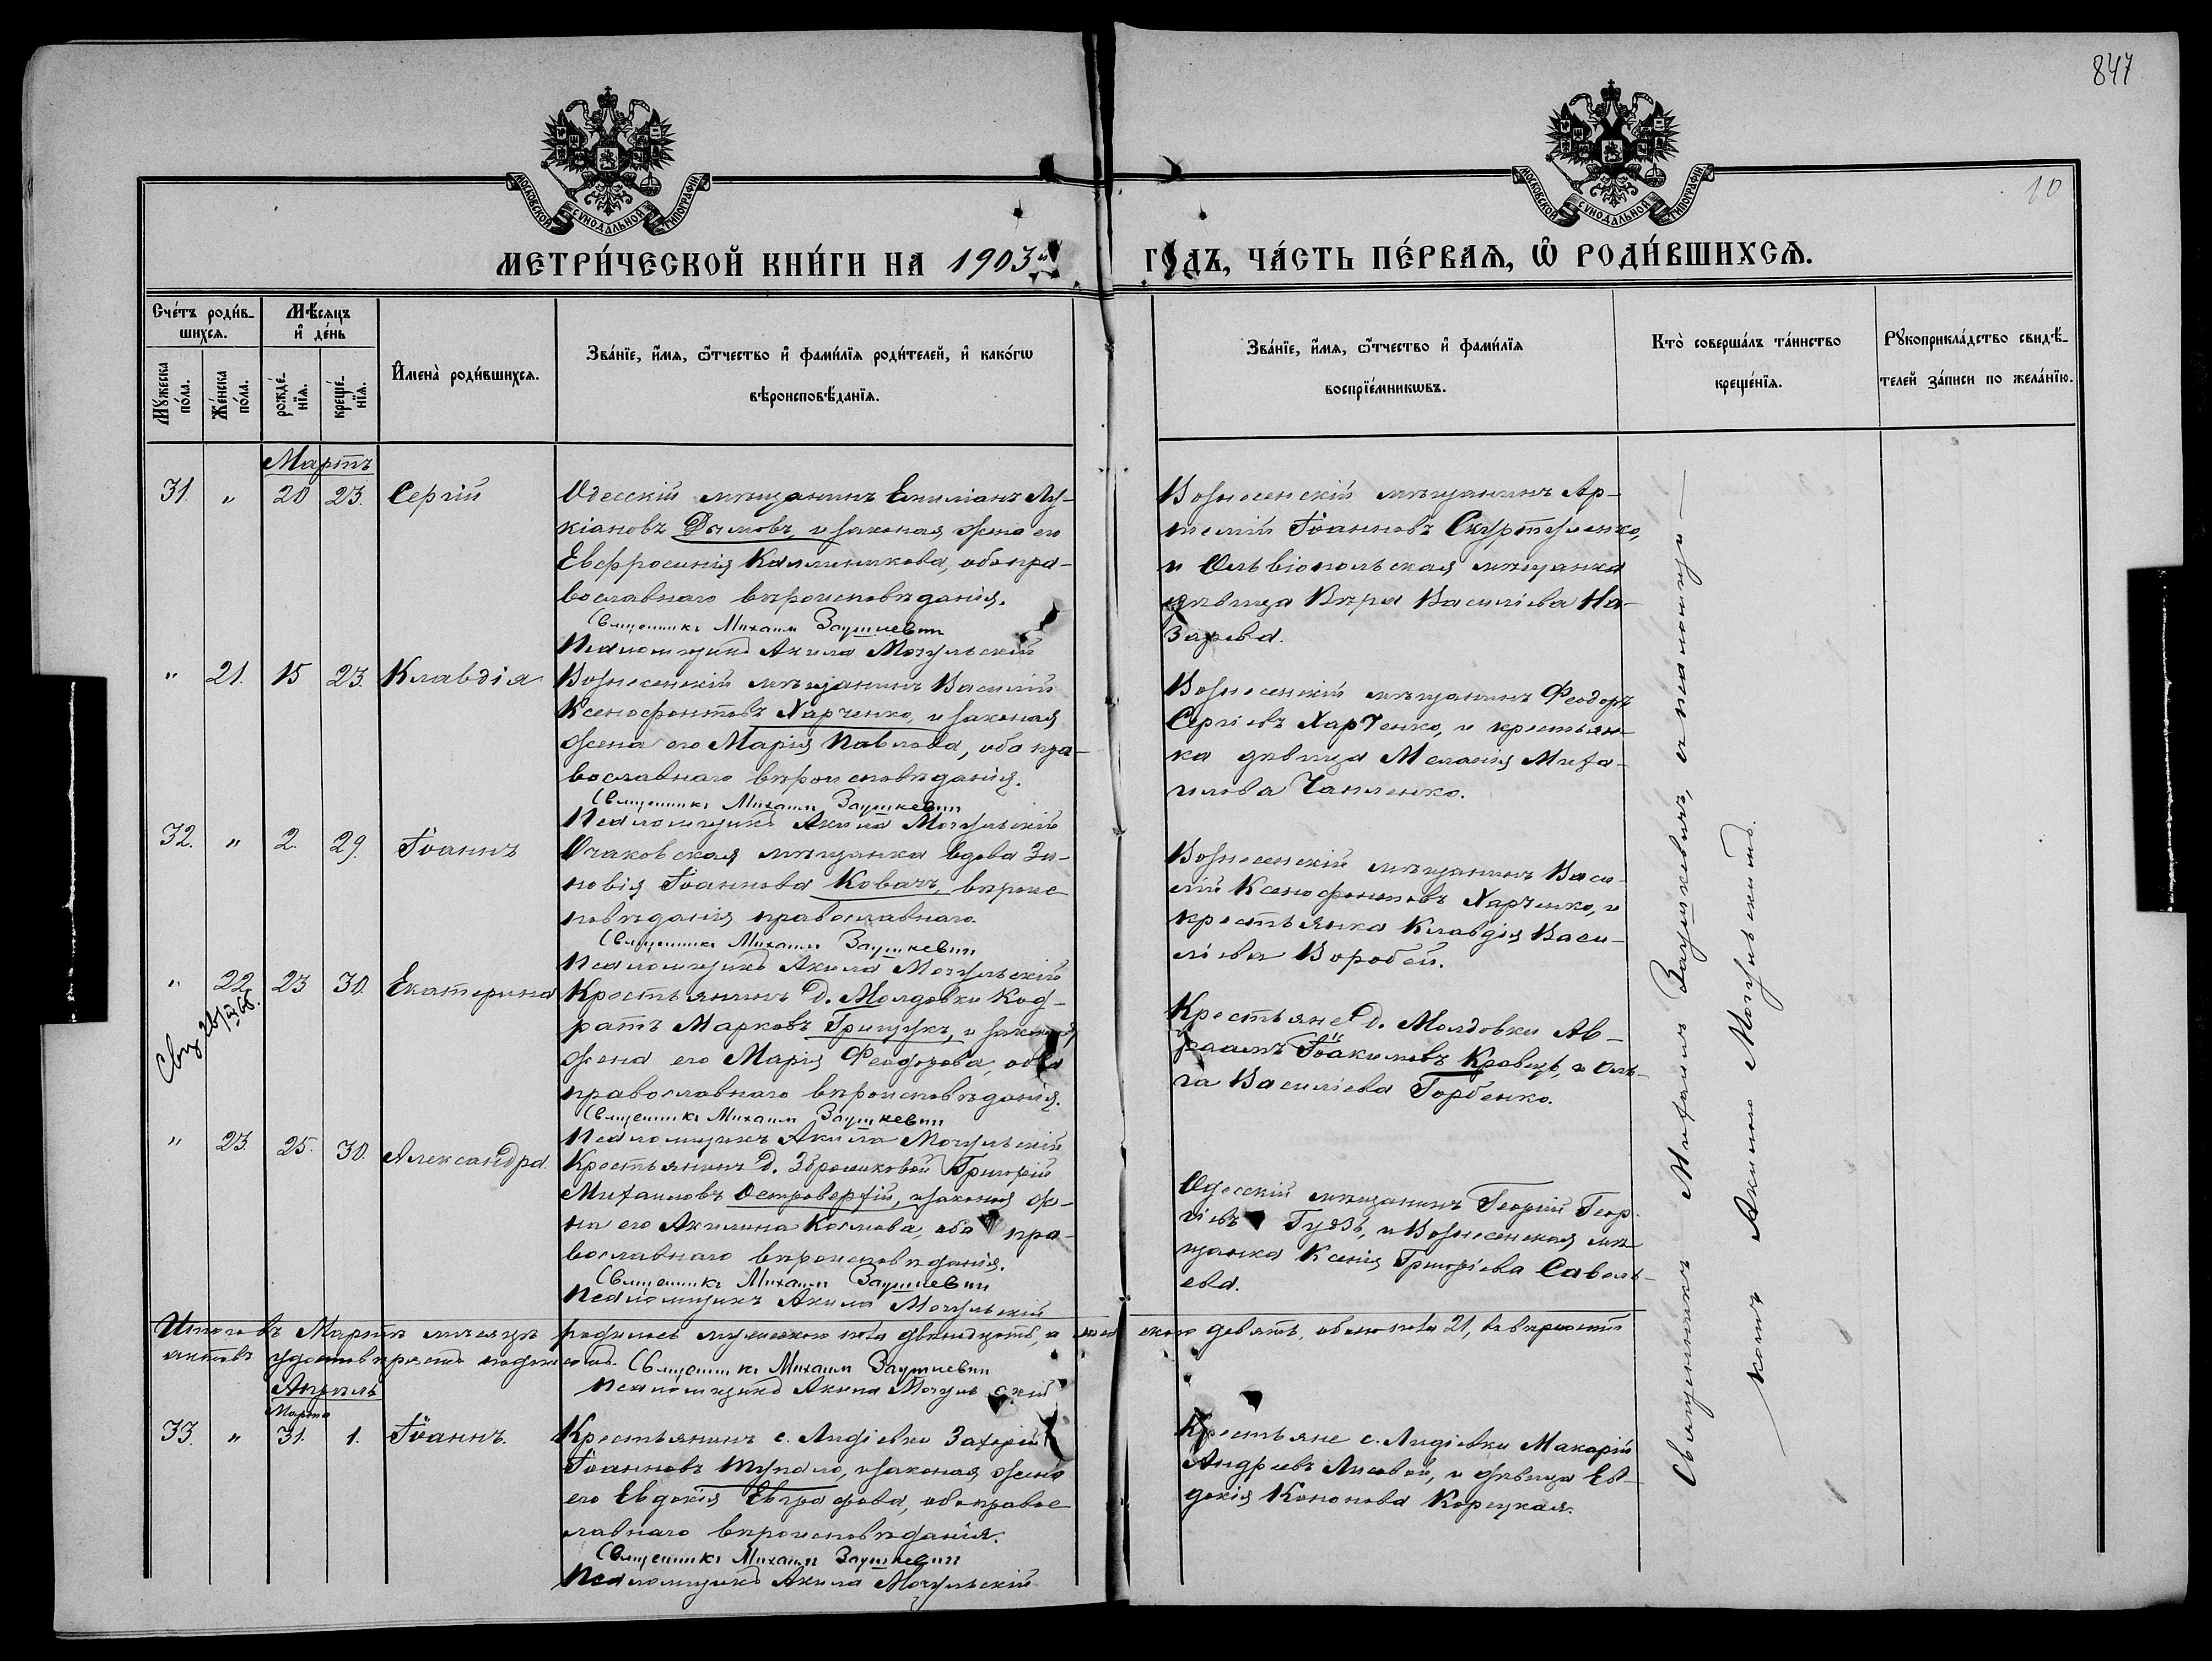 847
10
МОСКОВСКОЙ СУНОДАЛЬНОЙ ТИПОГРАФІИ
МОСКОВСКОЙ СУНОДАЛЬНОЙ ТИПОГРАФІИ
МЕТРИ́ЧЕСКОЙ КНИ́ГИ НА 1903й ГО́ДЪ, ЧА́СТЬ ПЕ́РВАѦ, Ѡ РОДИ́ВШИХСѦ.
Сче́тъ роди́в-
шихсѧ.
Мѣ́сѧцъ
и҆ де́нь
Мꙋ́жеска
по́ла.
Же́нска
по́ла.
рожде́-
нїѧ.
креще́-
нїѧ.
И҆мена̀ роди́вшихсѧ.
Зва́нїе, и҆́мѧ, ѻ҆́тчество и҆ фами́лїѧ роди́телей, и҆ како́гѡ
вѣроисповѣ́данїѧ.
Зва́нїе, и҆́мѧ, ѻ҆́тчество и҆ фами́лїѧ
воспрїе́мникѡвъ.
Кто̀ соверша́лъ та́инство
креще́нїѧ.
Рꙋкоприкла́дство свидѣ́-
телей за́писи по жела́нїю.
Мартъ
31. " 20 23. Сергій
Одесскій мѣщанинъ Емиліанъ Лу-
кіановъ Дымовъ, и законая жена его
Евфросинія Каллиникова, оба пра-
вославнаго вѣроисповѣданія.
Священникъ Михаилъ Заушкевич
Псаломщикъ Акила Могульскій
Вознесенскій мѣщанинъ Ар-
темій Іоанновъ Скуртуленко,
и Ольвіопольская мѣщанка
дѣвица Вѣра Василіева На-
зарева.
" 21. 15 23. Клавдія
Вознесенскій мѣщанинъ Василій
Ксенофонтовъ Харченко, и законая
жена его Марія Павлова, оба пра-
вославнаго вѣроисповѣданія.
Священникъ Михаилъ Заушкевич
Псаломщикъ Акила Могульскій
Вознесенскій мѣщанинъ Феодоръ
Сергіевъ Харченко, и крестьян-
ка дѣвица Меланія Миха-
илова Чапленко.
32. " 2. 29. Іоаннъ
Очаковская мѣщанка вдова Зи-
новія Іоаннова Ковачъ, вѣроис-
повѣданія православнаго.
Священникъ Михаилъ Заушкевич
Псаломщикъ Акила Могульскій
Вознесенскій мѣщанинъ Васи-
лій Ксенофонтовъ Харченко, и
крестьянка Клавдія Васи-
ліева Воробей.
" 22. 23 30. Екатерина
Крестьянинъ д. Молдовки Код-
ратъ Марковъ Грищукъ, и законая
жена его Марія Феодорова, оба
православнаго вѣроисповѣданія.
Священникъ Михаилъ Заушкевич
Псаломщикъ Акила Могульскій
Крестьяне д. Молдовки Ав-
раамъ Іоакимовъ Кравецъ, и Оль-
га Василіева Горбенко.
" 23. 25. 30. Александра
Крестьянинъ д. Збрашковой Григорій
Михаиловъ Островерхій, и законая же-
на его Акилина Космова, оба пра-
вославнаго вѣроисповѣданія.
Священникъ Михаилъ Заушкевич
Псаломщикъ Акила Могульскій
Одесскій мѣщанинъ Георгій Геор-
гіевъ Гудзь, и Вознесенская мѣ-
щанка Ксенія Григоріева Савель-
ева.
Итого въ Мартѣ мѣсяцѣ родилось мужескаго пола двѣнадцать, а женскаго девять, обоего пола 21, въ вѣрности
актовъ удостовѣряемъ подписью. Священникъ Михаилъ Заушкевич
Псаломщикъ Акила Могульскій
Апрѣль
Марта
33. " 31. 1. Іоаннъ.
Крестьянинъ с. Лидіевки Захарій
Іоанновъ Шупало, и законая жена
его Евдокія Евграфова, оба правос-
лавнаго вѣроисповѣданія.
Священникъ Михаилъ Заушкевич
Псаломщикъ Акила Могульскій
Крестьяне с. Лидіевки Макарій
Андреевъ Лисовой, и дѣвица Ев-
докія Кононова Корецкая.
Священникъ Михаилъ Заушкевичъ, съ псаломщи-
комъ Акилою Могульскимъ.